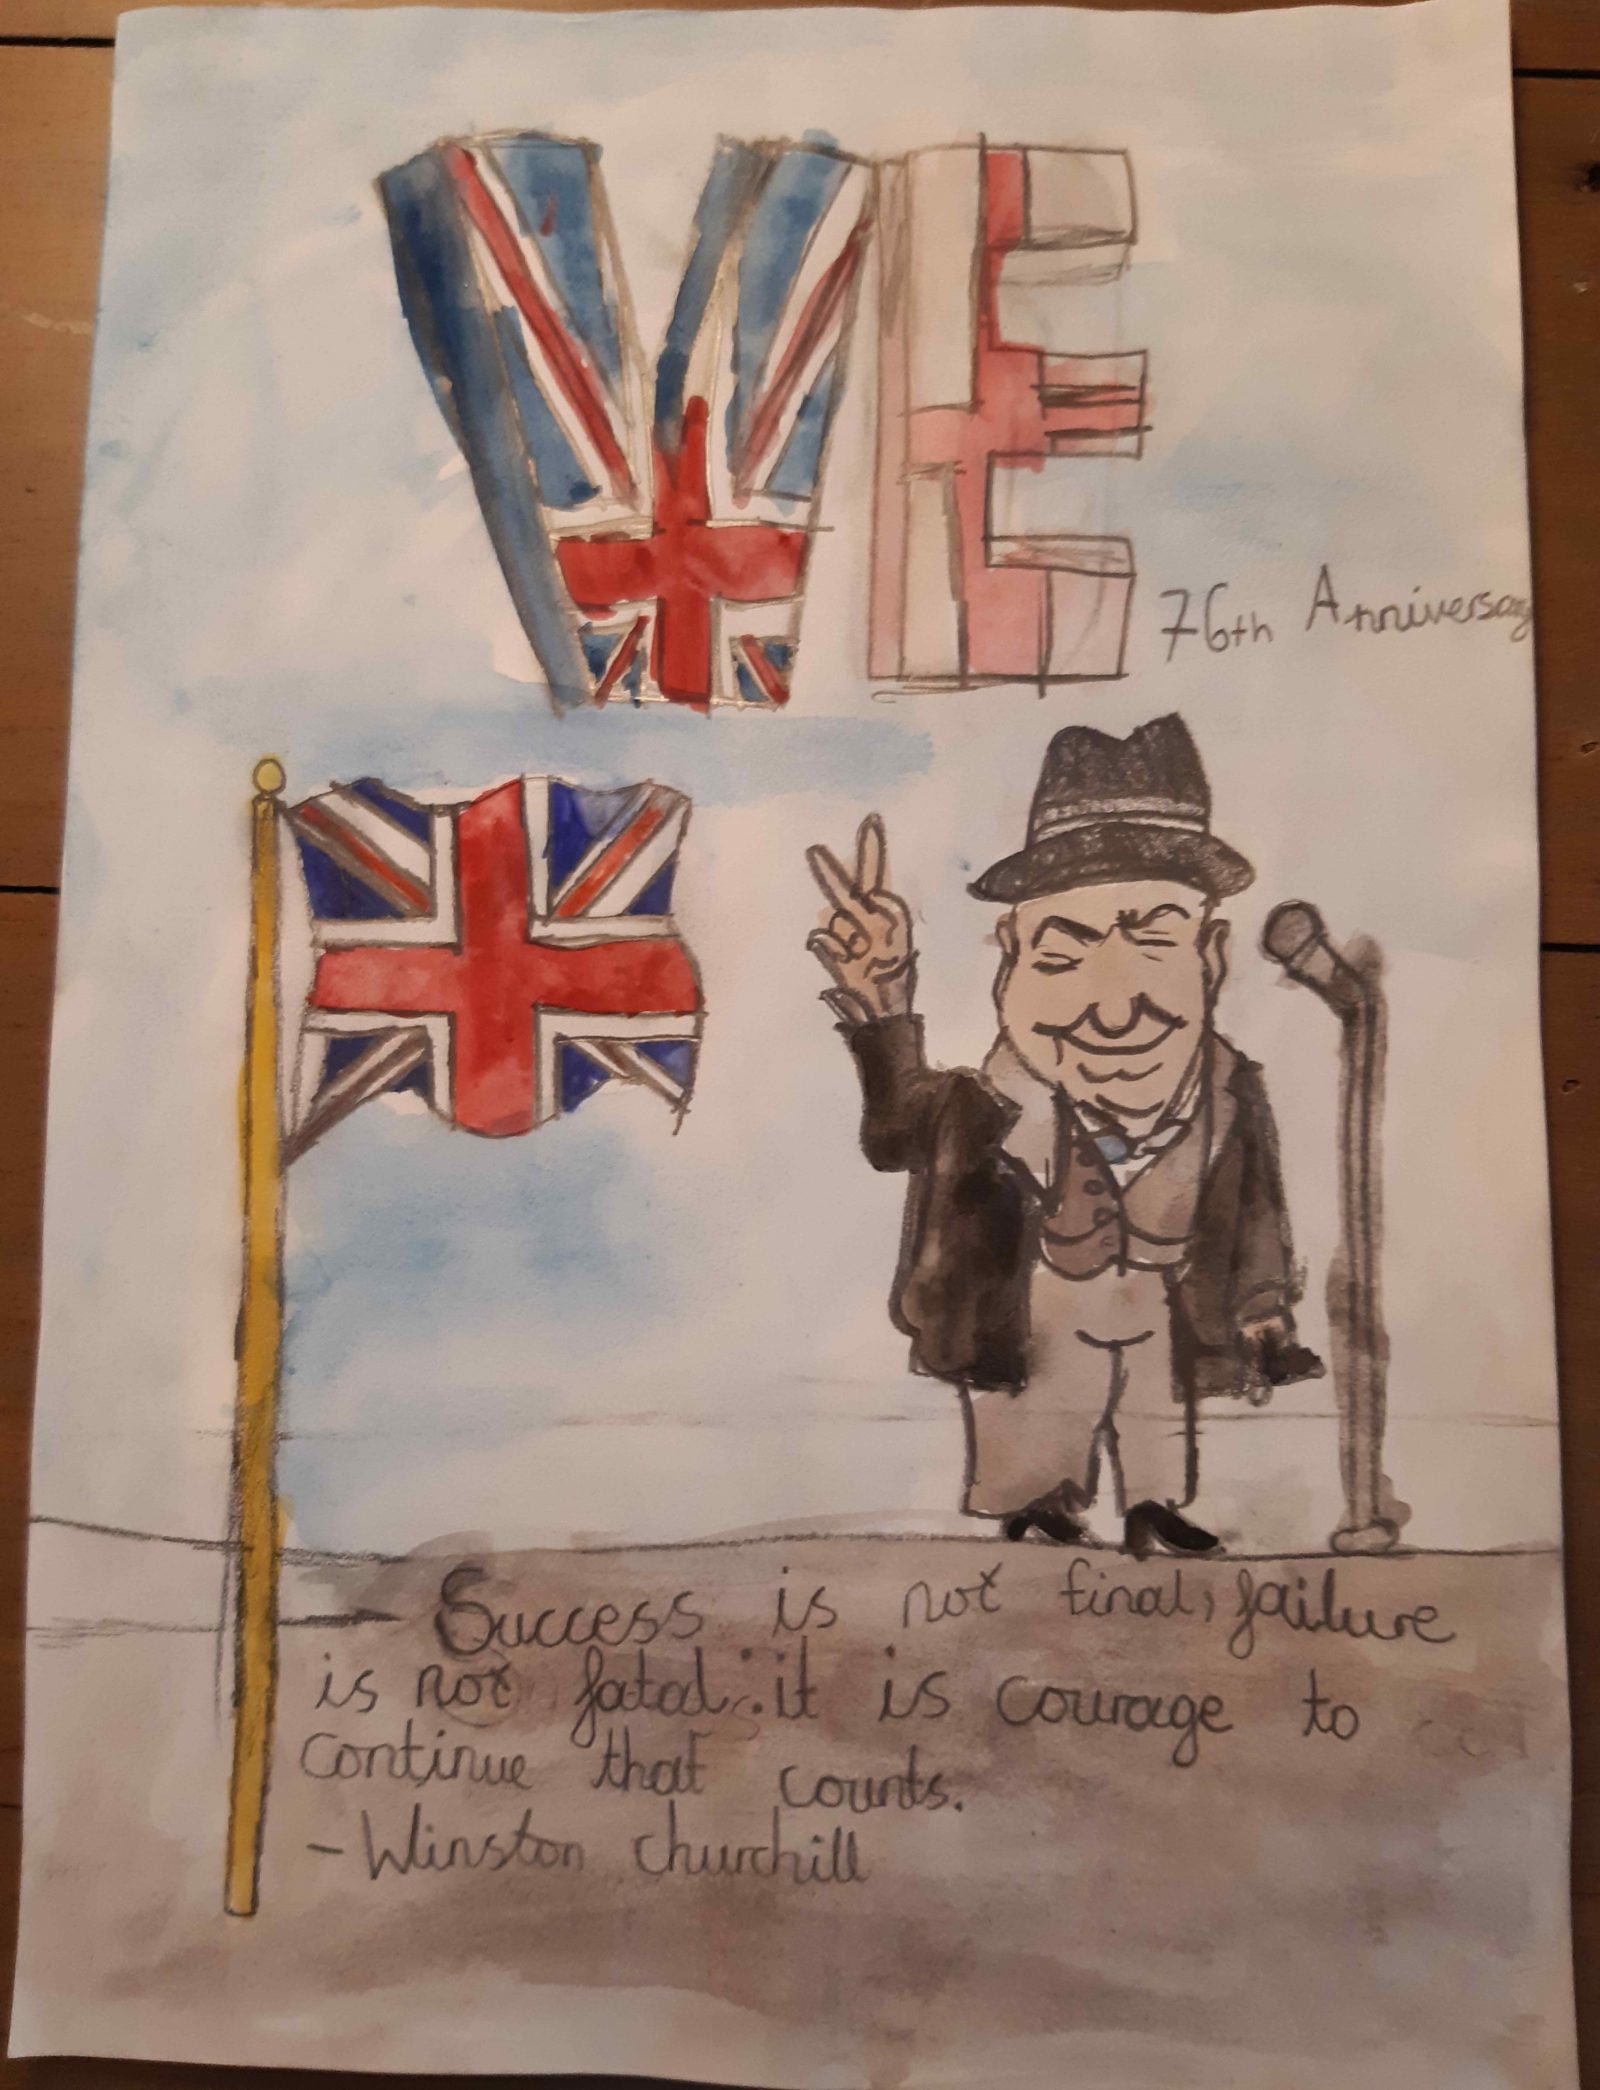 VE
76th Anniversary
Success is not final, failure
is not fatal: it is courage to
continue that counts.
- Winston Churchill